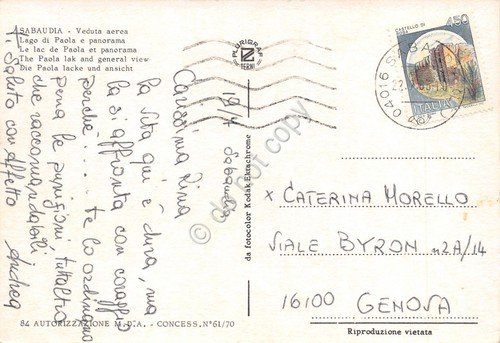 SABAUDIA - Veduta aerea
Lago di Paola e panorama
Le lac de Paola et panorama
The Paola lak and general view
Die Paola lacke und ansicht
PLURIGRAF
TERNI
19/4 Sabaudia
Carissima Rina
la vita qui è dura, ma
la si affronta con coraggio
perché... te lo ordinano
pena le punizioni tuttaltro
che raccomandabili
Ti saluto con affetto Andrea
84 AUTORIZZAZIONE M.D.A. - CONCESS. N° 61/70
da fotocolor Kodak Ektachrome
CASTELLO DI
450
ITALIA
04016 SABAUDIA
x CATERINA MORELLO
VIALE BYRON n2A/14
16100 GENOVA
Riproduzione vietata